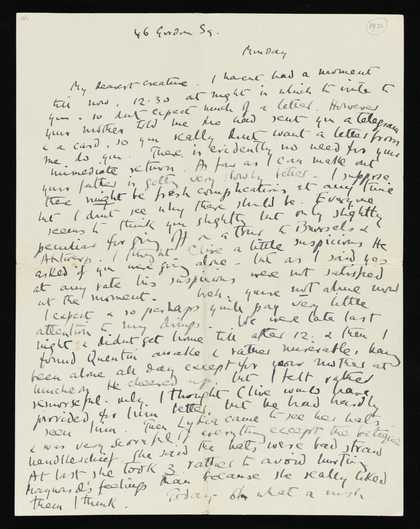 1921
46 Gordon Sq.
Monday
My dearest creature. I havent had a moment
till now, 12.30 at night in which to write to
you, so dont expect much of a letter. However
your mother told me she had sent you a telegram
& a card, so you really dont want a letter from
me do you. There is evidently no need for your
immediate return. As far as I can make out
your father is getting very slowly better. I suppose
there might be fresh complications at any time
but I dont see why there should be. Everyone
seems to think you slightly but only slightly
peculiar for going off on a tour to Brussels &
Antwerp. I thought Clive a little suspicious. He
asked if you were going alone. but as I said yes
at any rate his suspicions were not satisfied
at the moment. Well, youre not alone now
I expect & so perhaps youll pay very little
attention to my doings. We were late last
night & didnt get home till after 12, & then I
found Quentin awake & rather miserable, having
been alone all day except for your mother at
luncheon. He cheered up, but I felt rather
remorseful. only I thought Clive would have
provided for him better, but he had hardly
seen him. Then Lydia came to see her hats
& was very scornful of everything except the
handkerchief. She said the hats were bad straw
At last she took 3 rather to avoid hurting
Hayward's feelings than because she really liked
them I think. Today oh what a rush